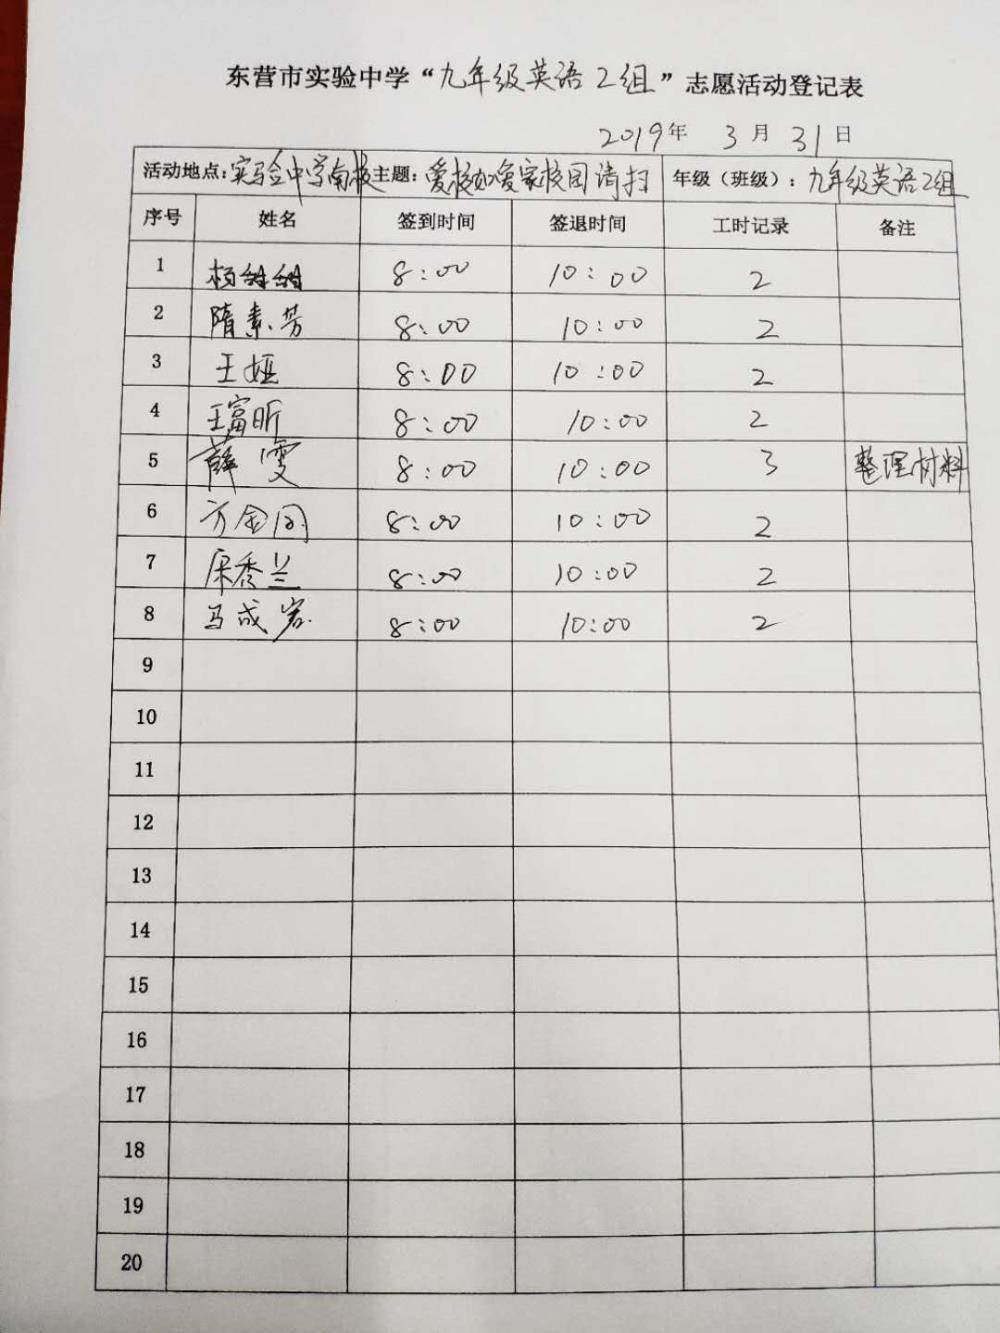 东营市实验中学“九年级英语2组”志愿活动登记表
2019年 3月 31日
活动地点:实验中学南校 主题:爱校如爱家校园请扫 年级（班级）:九年级英语2组
序号 姓名 签到时间 签退时间 工时记录 备注
1 杨甜甜 8:00 10:00 2
2 隋素芳 8:00 10:00 2
3 王娅 8:00 10:00 2
4 王富昕 8:00 10:00 2
5 薛雯 8:00 10:00 3 整理材料
6 方金同 8:00 10:00 2
7 秀兰 8:00 10:00 2
8 马成 8:00 10:00 2
9
10
11
12
13
14
15
16
17
18
19
20